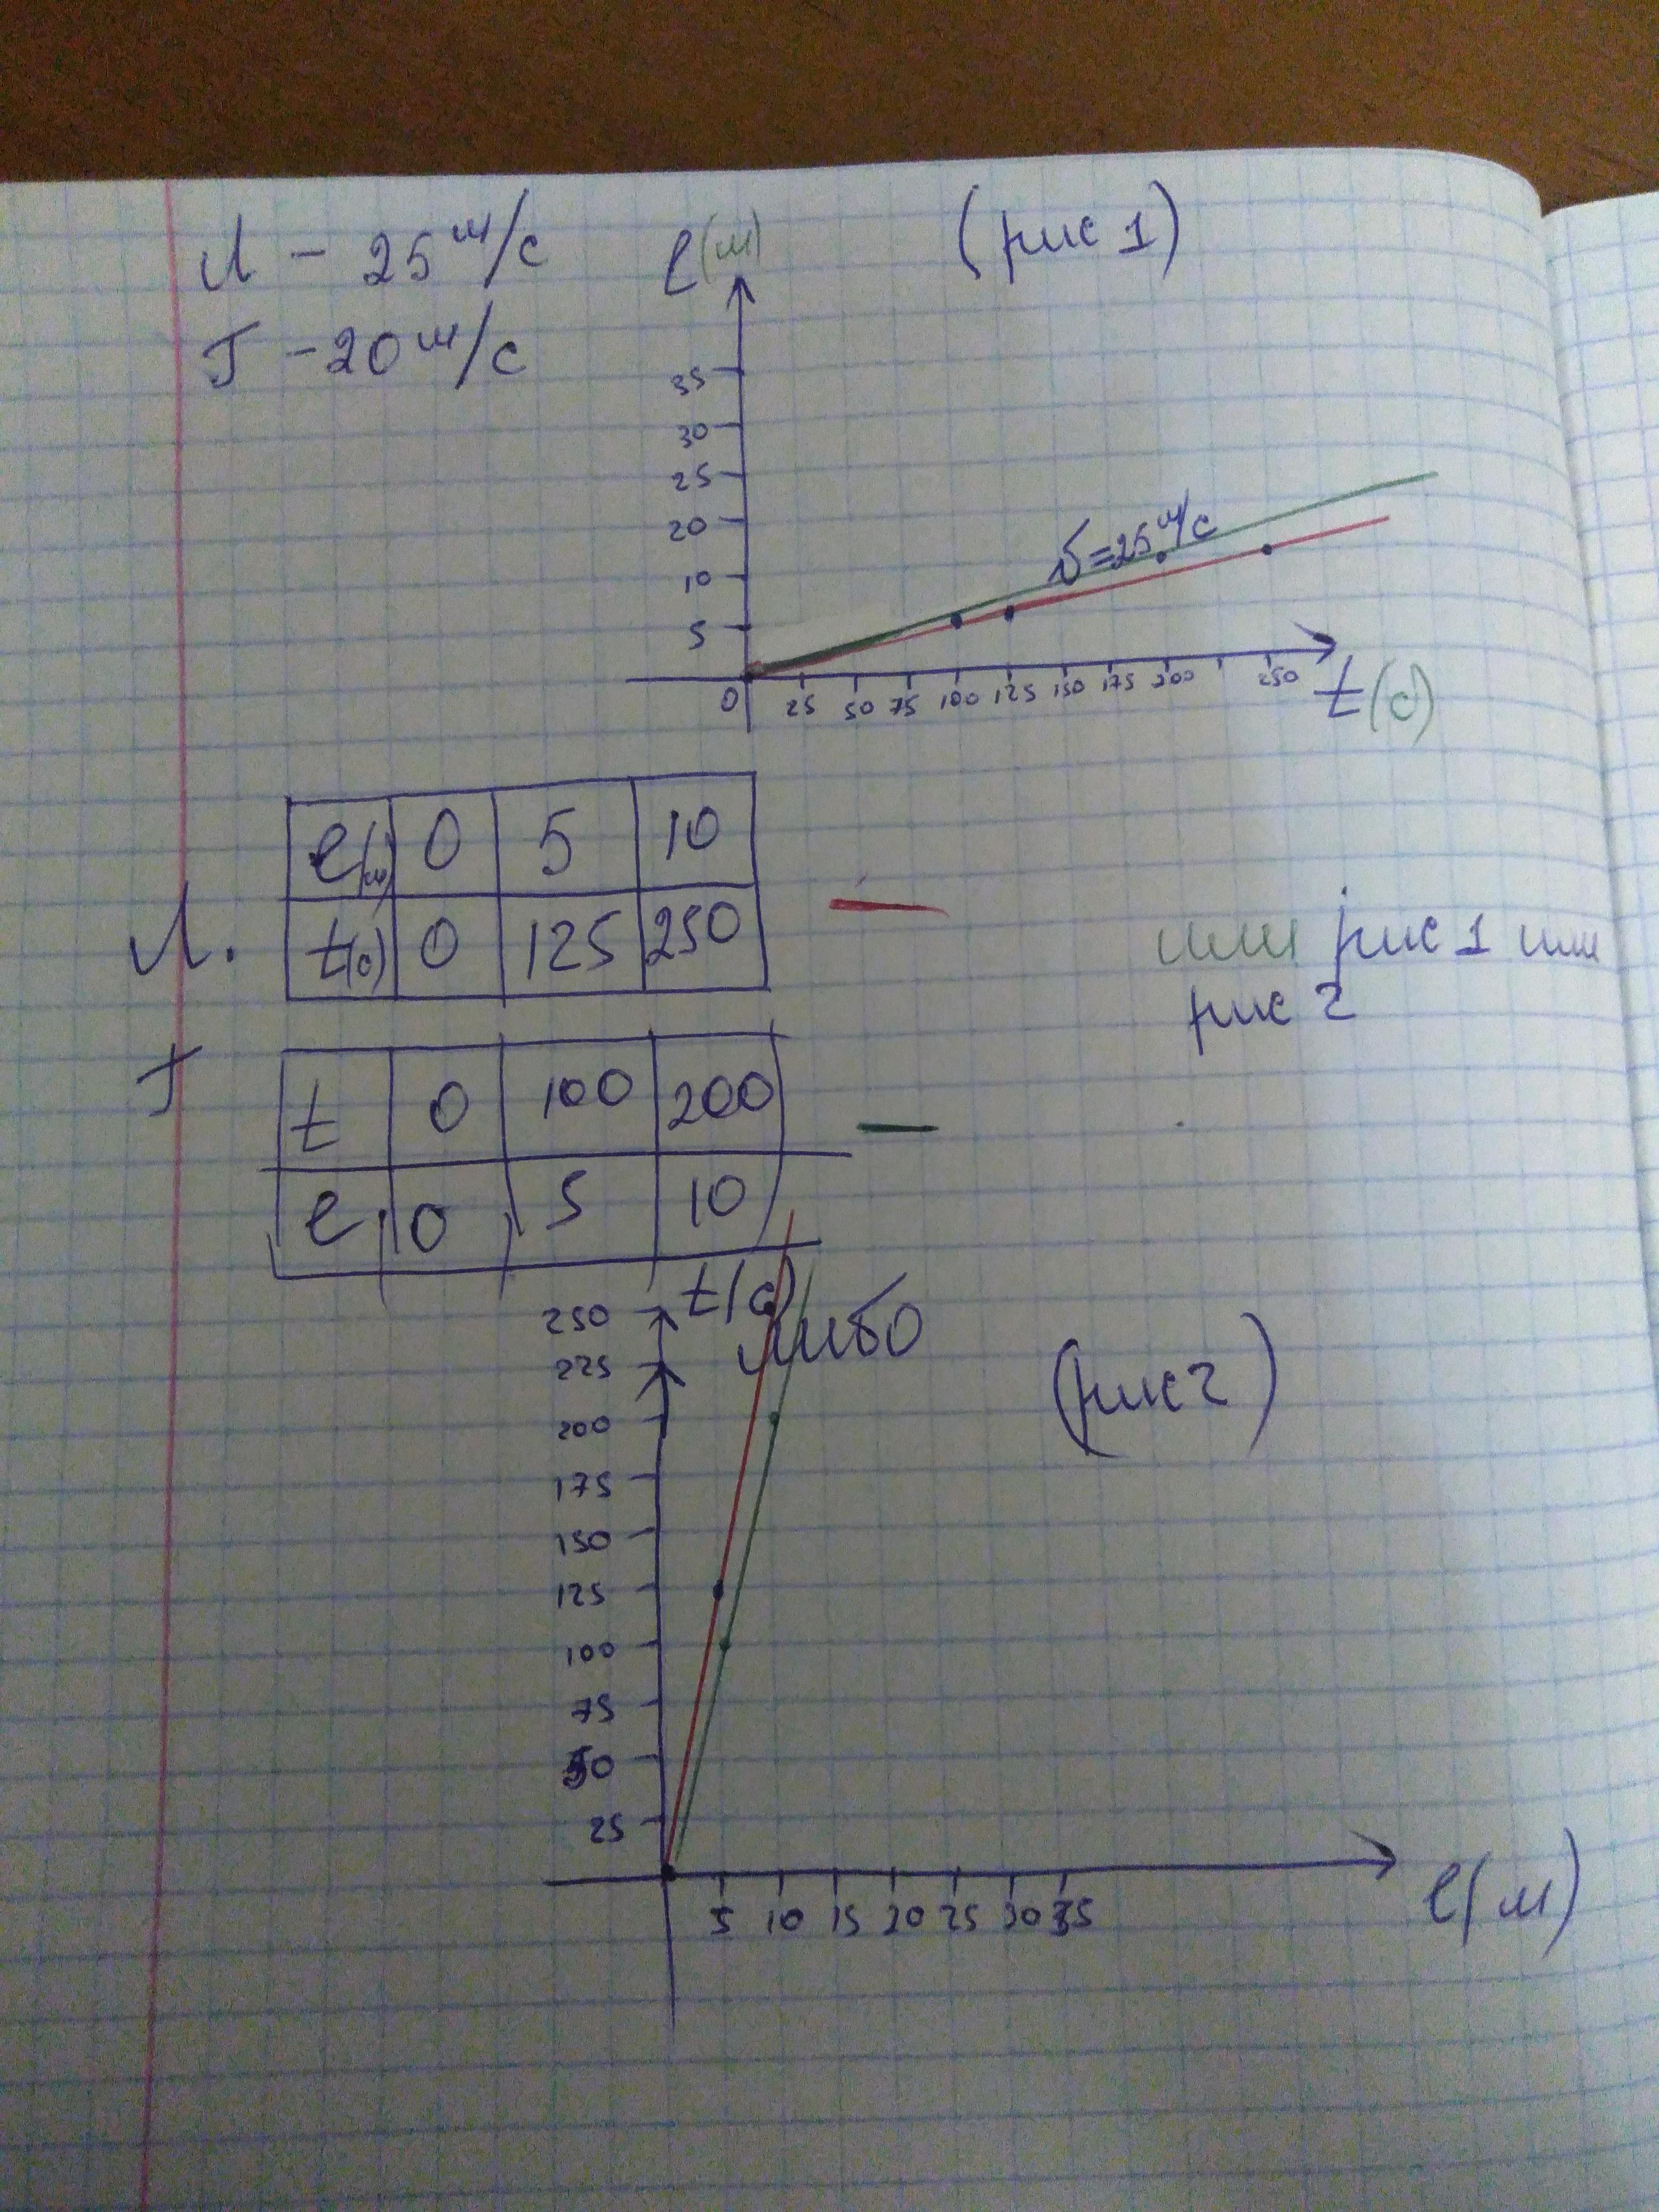 Л – 25 м/с
Т – 20 м/с
l(м)
(рис 1)
35
30
25
20
10
5
0
25 50 75 100 125 150 175 200 250
t(с)
υ=25 м/с
Л.
l(м) 0 5 10
t(с) 0 125 250
или рис 1 или
рис 2
Т
t 0 100 200
l 0 5 10
t(с)
либо
(рис 2)
250
225
200
175
150
125
100
75
50
25
5 10 15 20 25 30 35
l(м)